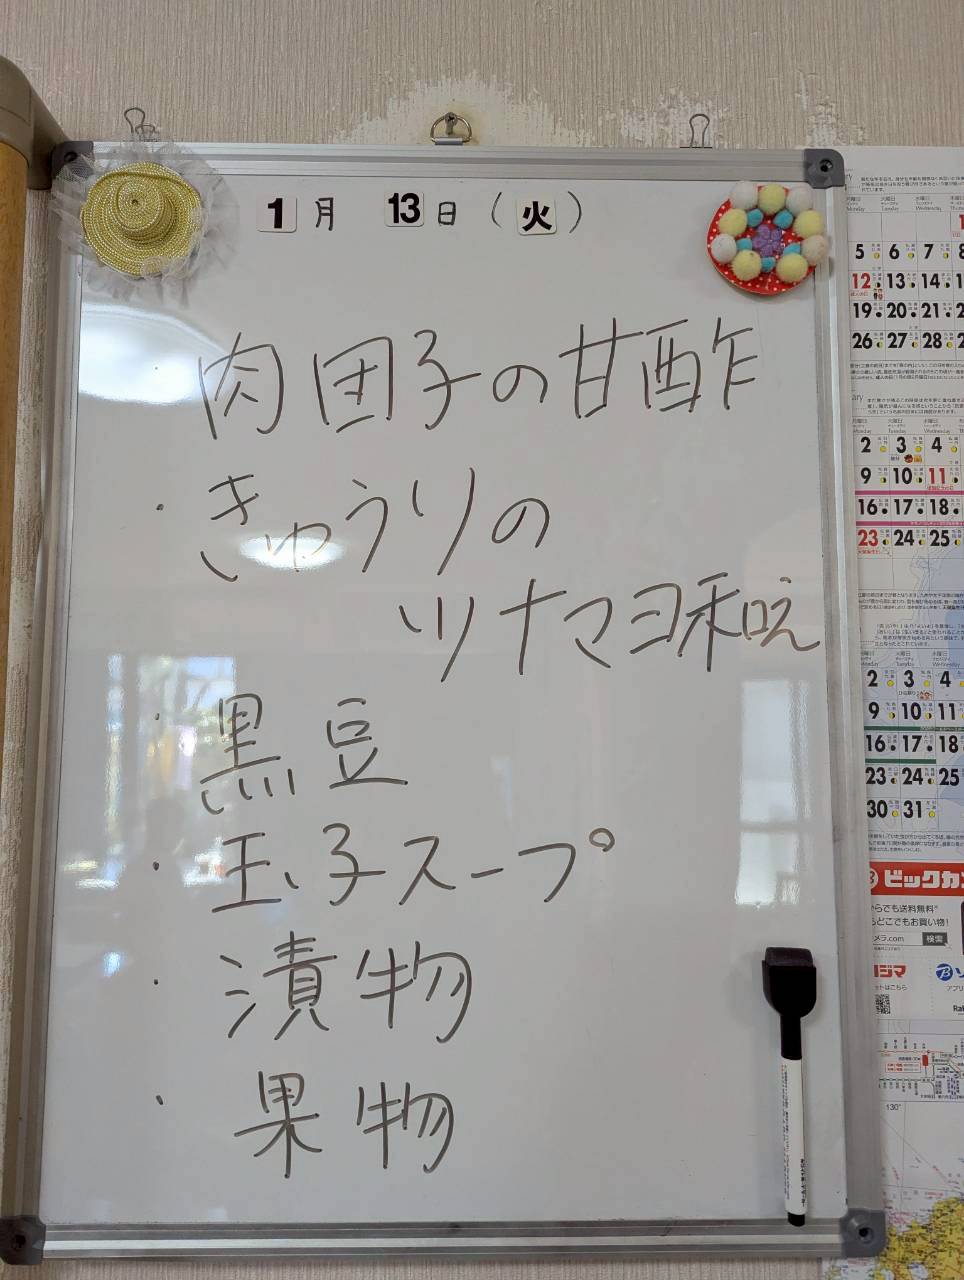 1月 13日（火）
肉団子の甘酢
・きゅうりの
ツナマヨ和え
・黒豆
・玉子スープ
・漬物
・果物
5 6 7 8
12 13 14 1
19 20 21 2
26 27 28 2
2 3 4
9 10 11
16 17 18
23 24 25
2 3 4
9 10 11
16 17 18
23 24 25
30 31
ビックカ
らでも送料無料
どこでもお買い物!
メラ.com 検索
130°